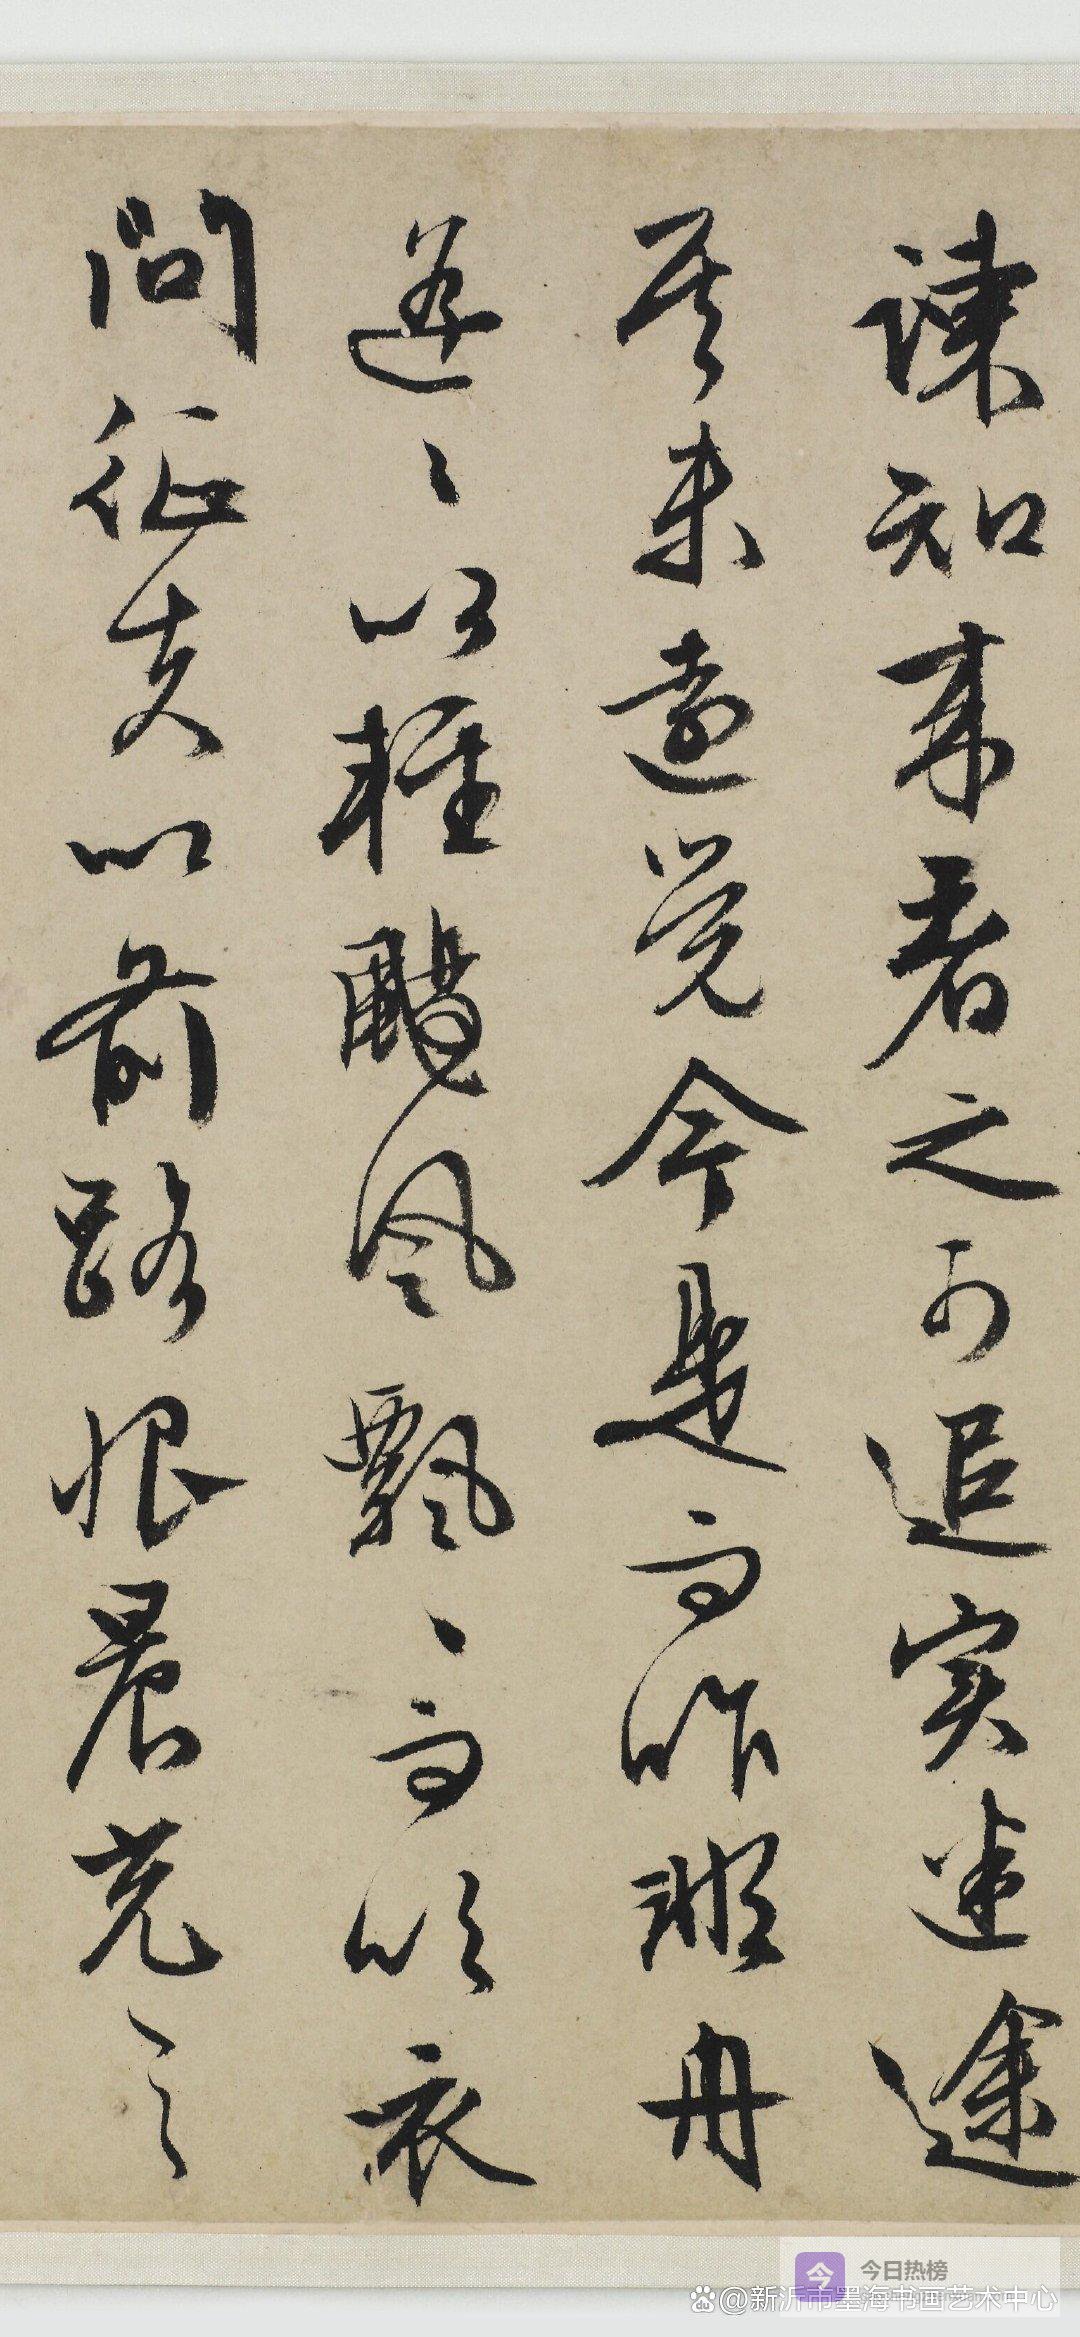 諫知来者之可追实迷途
其未遠觉今是而昨非舟
遥々以軽颺風飘々而吹衣
问征夫以前路恨晨光之
今日热榜
@新沂市墨海书画艺术中心